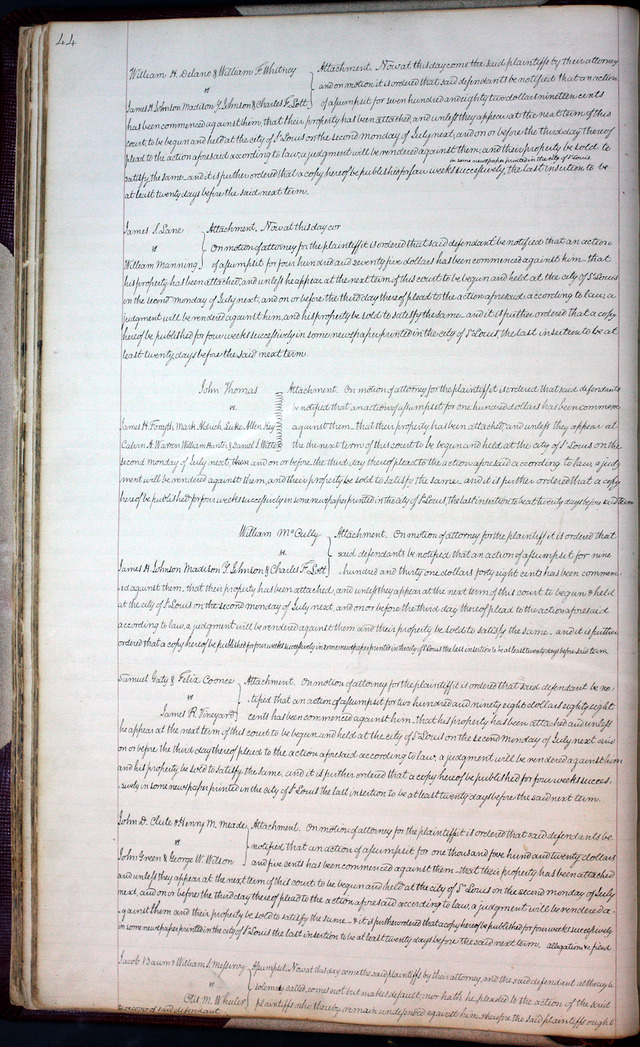 44
William H. Delano & William F. Whitney } Attachment. Now at this day come the said plaintiffs by their attorney
vs and on motion it is ordered that said defendants be notified that an action
James H. Johnson Madison Y. Johnson & Charles F. Lott of assumpsit for seven hundred and eighty two dollars nineteen cents
has been commenced against them, that their property has been attached, and unless they appear at the next term of this
court to be begun and held at the city of St Louis on the second monday of July next, and on or before the third day thereof
plead to the action aforesaid according to law, a judgment will be rendered against them, and their property be sold to
in some newspaper printed in the city of St Louis
satisfy the same. and it is further ordered that a copy hereof be published for four weeks successively, the last insertion to be
at least twenty days before the said next term.
James S. Lane } Attachment. Now at this day cor
vs On motion of attorney for the plaintiff it is ordered that said defendant be notified that an action
William Manning of assumpsit for four hundred and seventy five dollars has been commenced against him that
his property has been attached, and unless he appear at the next term of this court to be begun and held at the city of St Louis
on the second monday of July next, and on or before the third day thereof plead to the action aforesaid according to law, a
judgment will be rendered against him, and his property be sold to satisfy the same and it is further ordered that a copy
hereof be published for four weeks successively in some newspaper printed in the city of St Louis, the last insertion to be at
least twenty days before the said next term.
John Thomas } Attachment. On motion of attorney for the plaintiff it is ordered that said defendants
vs. be notified that an action of assumpsit for one hundred dollars has been commenc
James H. Forsyth Mark Aldrich Luke Allen Key against them that their property has been attached, and unless they appear at
Calvin A. Warren William & Daniel S. Witter the the next term of this court to be begun and held at the city of St Louis on the
second monday of July next, then and on or before the third day thereof plead to the action aforesaid according to law, a judg
ment will be rendered against them, and their property be sold to satisfy the same and it is further ordered that a copy
hereof be published for four weeks successively in some newspaper printed in the city of St Louis, the last insertion to be at twenty days before said term
William McCully } Attachment. On motion of attorney for the plaintiff it is ordered that
vs. said defendants be notified that an action of assumpsit for nine
James H. Johnson Madison Y. Johnson & Charles F. Lott hundred and thirty one dollars forty eight cents has been commen-
ced against them, that their property has been attached, and unless they appear at the next term of this court to be begun & held
at the city of St Louis on the second monday of July next, and on or before the third day thereof plead to the action aforesaid
according to law, a judgment will be rendered against them and their property be sold to satisfy the same and it is further
ordered that a copy hereof be published for four weeks successively in some newspaper printed in the city of St Louis the last insertion to be at least twenty days before said term
Samuel Gaty & Felix Coonce } Attachment. On motion of attorney for the plaintiff it is ordered that said defendant be no-
vs tified that an action of assumpsit for two hundred and ninety eight dollars eighty eight
James R. Vineyard cents has been commenced against him that his property has been attached and unless
he appear at the next term of this court to be begun and held at the city of St Louis on the second monday of July next and
on or before the third day thereof plead to the action aforesaid according to law, a judgment will be rendered against him
and his property be sold to satisfy the same, and it is further ordered that a copy hereof be published for four weeks succes-
sively in some newspaper printed in the city of St Louis the last insertion to be at least twenty days before the said next term.
John D. Clute & Henry M. Meade } Attachment. On motion of attorney for the plaintiff it is ordered that said defendants be
vs notified that an action of assumpsit for one thousand five hund and twenty dollars
John Green & George W. Wilson and five cents has been commenced against them that their property has been attached
and unless they appear at the next term of this court to be begun and held at the city of St Louis on the second monday of July
next, and on or before the third day thereof plead to the action aforesaid according to law, a judgment will be rendered a-
gainst them and their property be sold to satisfy the same & it is further ordered that a copy hereof be published for four weeks successively
in some newspaper printed in the city of St Louis the last insertion to be at least twenty days before the said next term.
Jacob & William S. Messervy } Assumpsit. Now at this day come the said plaintiffs by their attorney, and the said defendant although
vs solemnly called, comes not but makes default, nor hath he pleaded to the action of the said
Otis M. Wheeler plaintiffs who thereby remain undefended against him, wherefore the said plaintiffs ought
to recover of said defendant